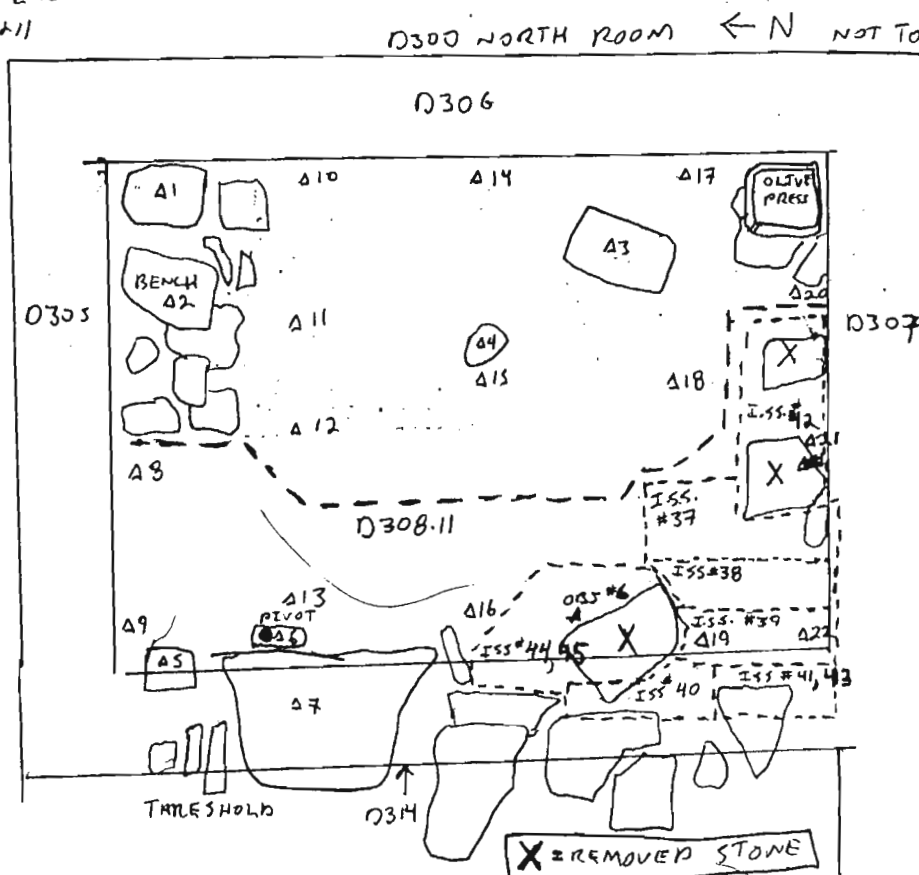 211
D300 NORTH ROOM ← N NOT TO
D306
Δ1
Δ10
Δ14
Δ17
OLIVE
PRESS
Δ3
BENCH
Δ2
Δ20
D305
Δ11
Δ4
D307
Δ15
X
Δ18
Δ12
I.SS.#
42
Δ21
Δ8
X
I.SS.
#37
D308.11
ISS#38
Δ13
OBJ #6
Δ9
PIVOT
Δ6
Δ16
X
ISS. #39
Δ19
Δ22
Δ5
ISS#44,45
ISS# 40
ISS #41,43
Δ7
THRESHOLD
D314
X = REMOVED STONE